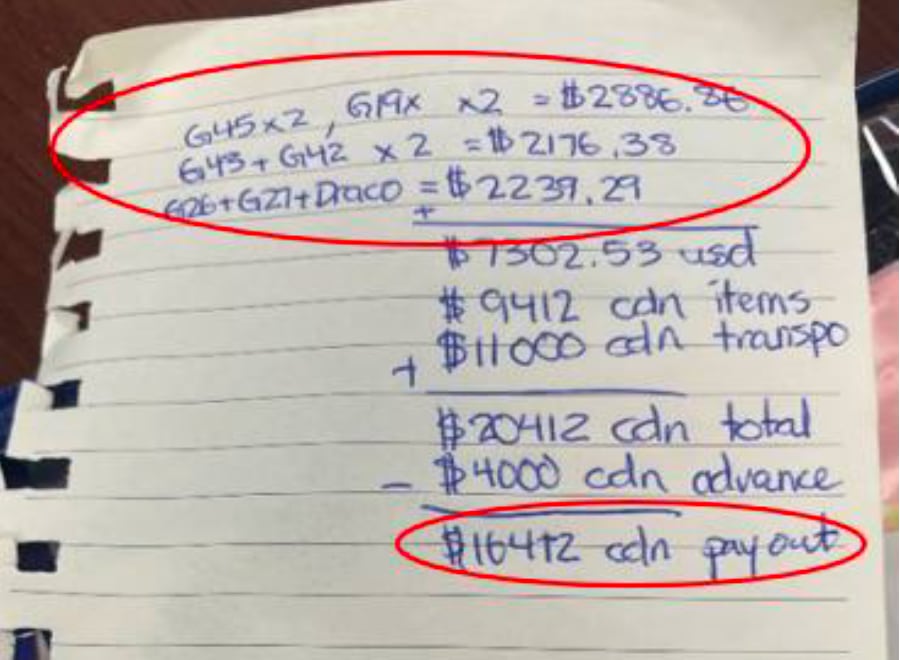 G45 x 2, G19x x2 = $2886.86
G43 + G42 x 2 = $2176.38
G26+G27+Draco = $2239.29
+
$7302.53 usd
$9412 cdn items
+ $11000 cdn transpo
$20412 cdn total
- $4000 cdn advance
$16412 cdn payout